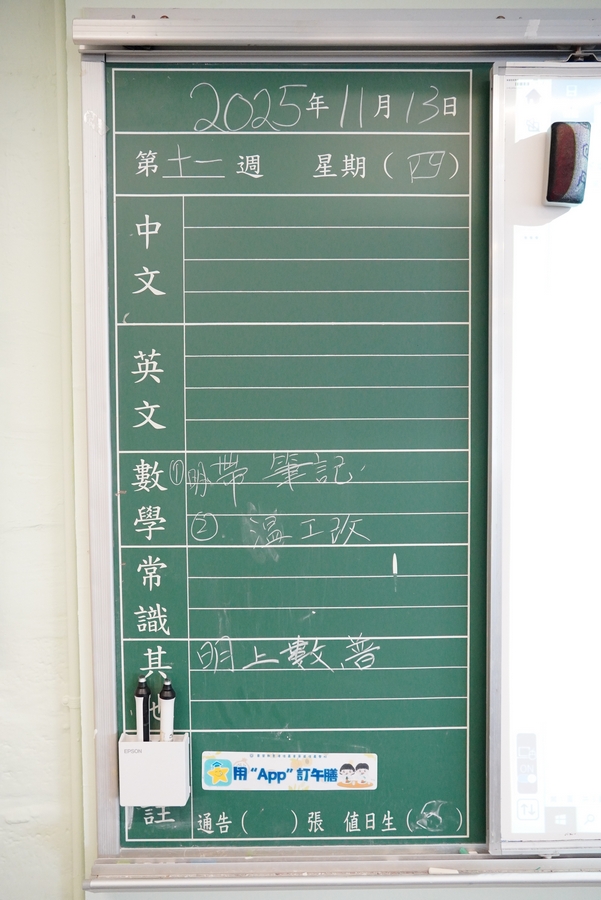 2025年11月13日
第十一週 星期(四)
中文
英文
數學 ①明帶筆記
② 溫工改
常識
其他 明上數、普
EPSON
用“App”訂午膳
註 通告( )張 值日生( )